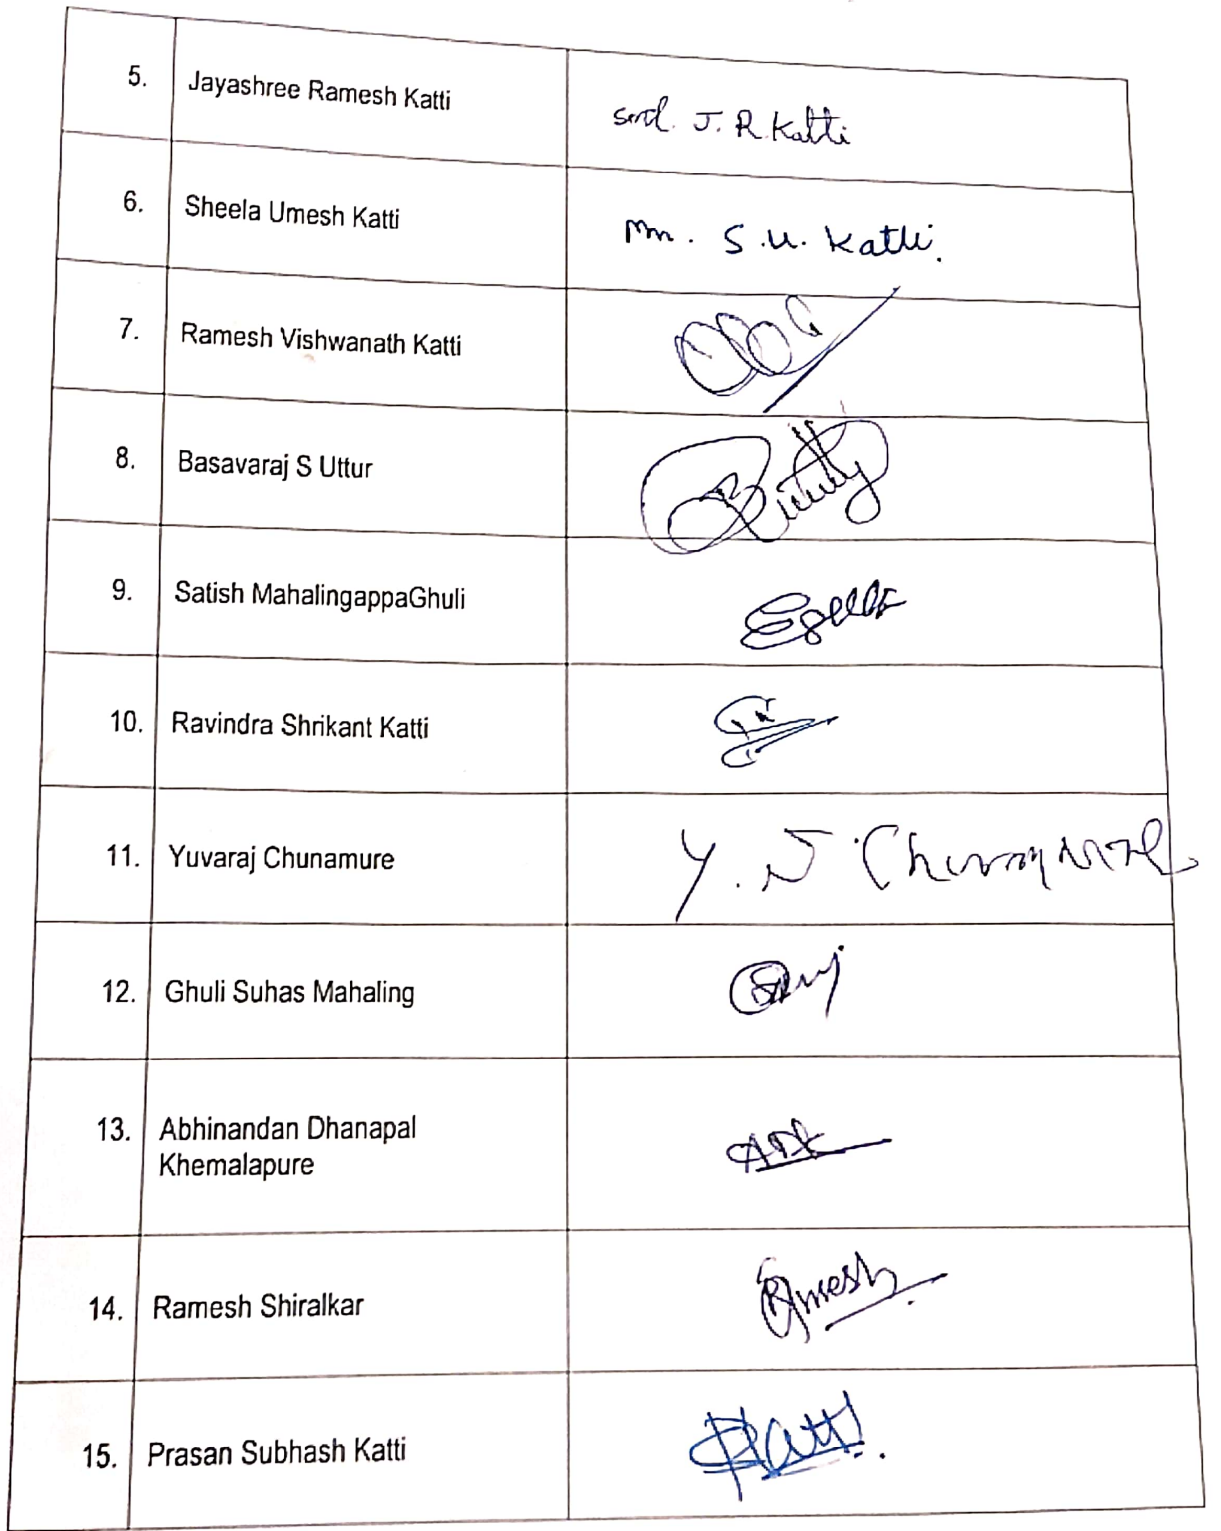 5. Jayashree Ramesh Katti J. R. Katti
6. Sheela Umesh Katti S. U. Katti.
7. Ramesh Vishwanath Katti
8. Basavaraj S Uttur
9. Satish MahalingappaGhuli
10. Ravindra Shrikant Katti
11. Yuvaraj Chunamure Y.
12. Ghuli Suhas Mahaling
13. Abhinandan Dhanapal
Khemalapure
14. Ramesh Shiralkar
15. Prasan Subhash Katti